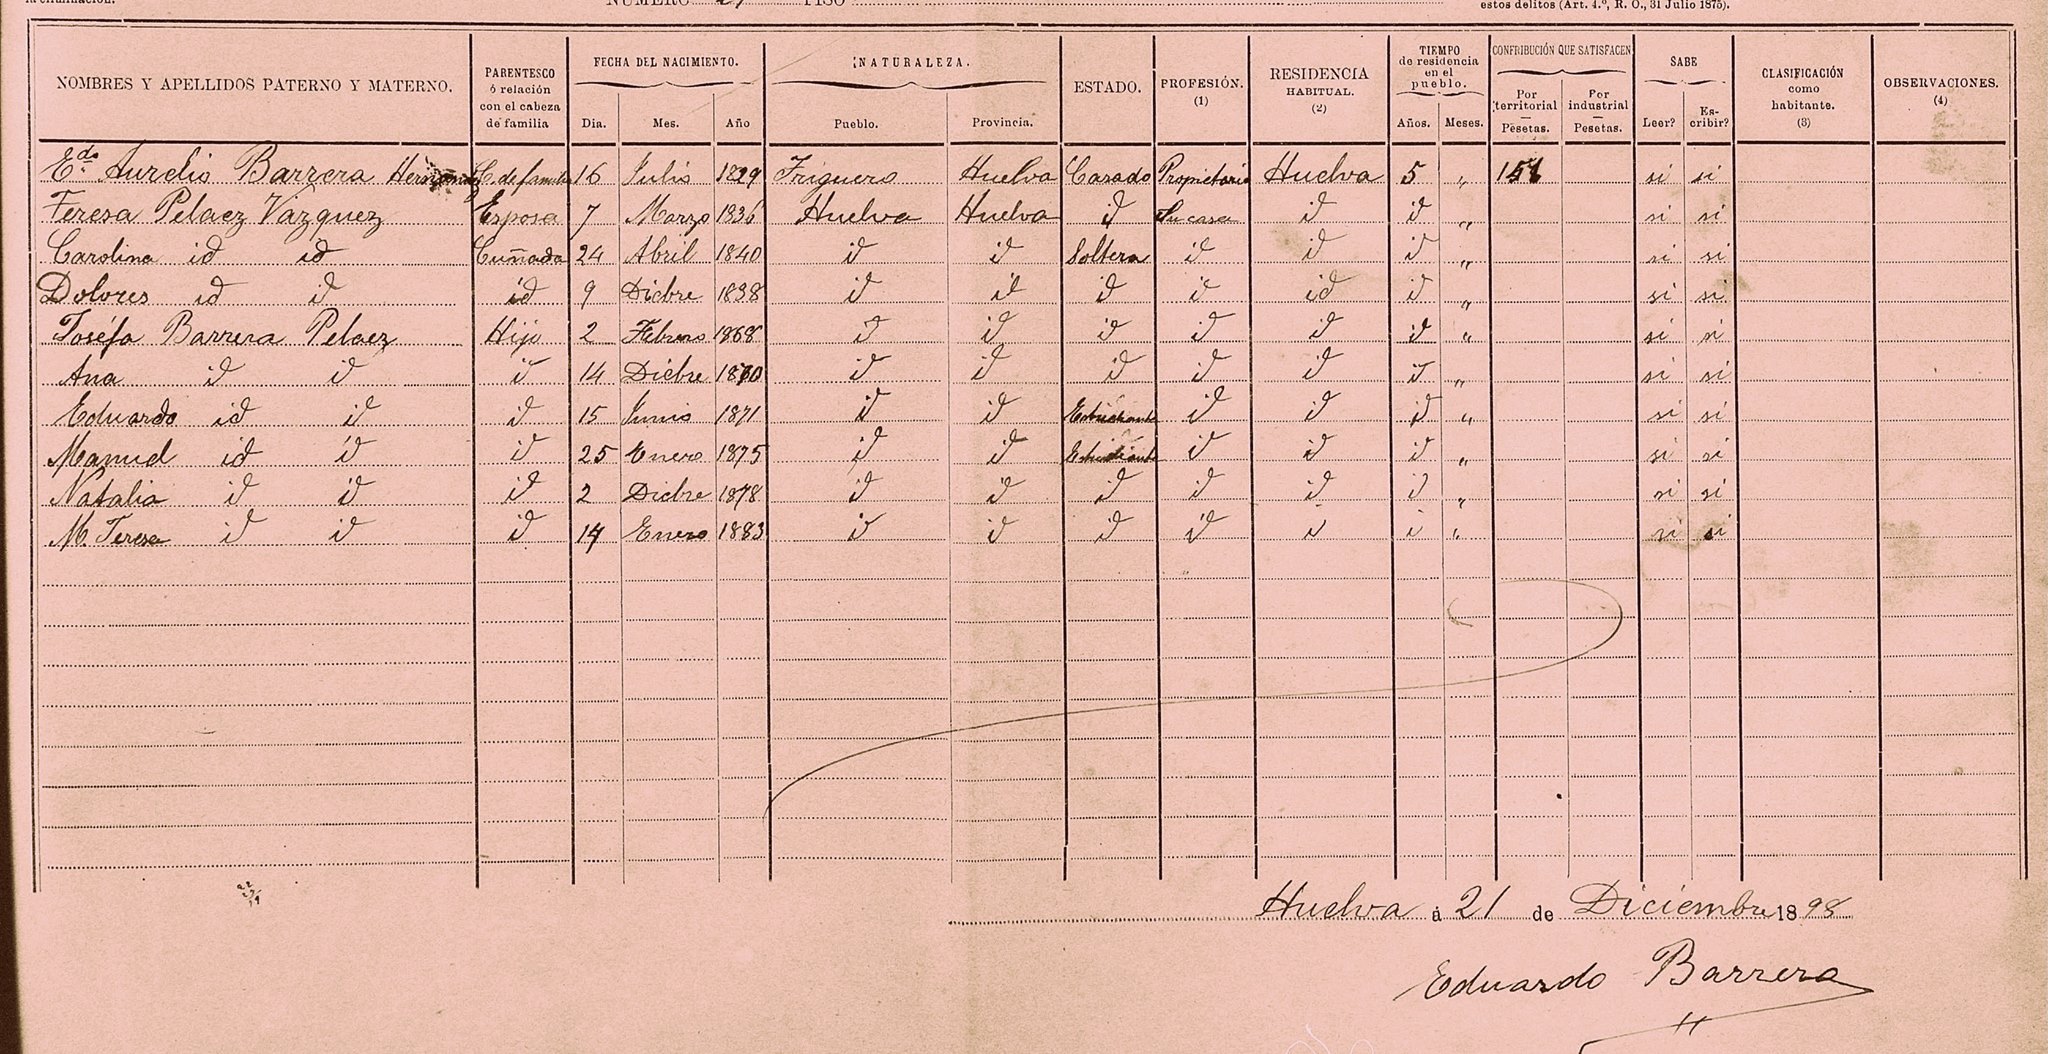 la eliminación. NÚMERO 27 PISO estos delitos (Art. 4.º, R. O., 31 Julio 1875).
NOMBRES Y APELLIDOS PATERNO Y MATERNO. PARENTESCO ó relación con el cabeza de familia FECHA DEL NACIMIENTO. Dia. Mes. Año NATURALEZA. Pueblo. Provincia. ESTADO. PROFESIÓN. (1) RESIDENCIA HABITUAL. (2) TIEMPO de residencia en el pueblo. Años. Meses. CONTRIBUCIÓN QUE SATISFACEN Por territorial — Pesetas. Por industrial — Pesetas. SABE Leer? Escribir? CLASIFICACIÓN como habitante. (3) OBSERVACIONES. (4)
E.do Aurelio Barrera C. de familia 16 Julio 1839 Triguero Huelva Casado Propietario Huelva 5 " si si
Teresa Pelaez Vázquez Esposa 7 Marzo 1836 Huelva Huelva id Su casa id id " si si
Carolina id id Cuñada 24 Abril 1840 id id Soltera id id id " si si
Dolores id id id 9 Dicbre 1838 id id id id id id " si si
Joséfa Barrera Pelaez Hijo 2 Febrero 1868 id id id id id id " si si
Ana id id id 14 Dicbre 1870 id id id id id id " si si
Eduardo id id id 15 Junio 1871 id id Estudiante id id id " si si
Manuel id id id 25 Enero 1875 id id Estudiante id id id " si si
Natalia id id id 2 Dicbre 1878 id id id id id id " si si
M. Teresa id id id 14 Enero 1883 id id id id i i " si si
Huelva á 21 de Diciembre 1898
Eduardo Barrera